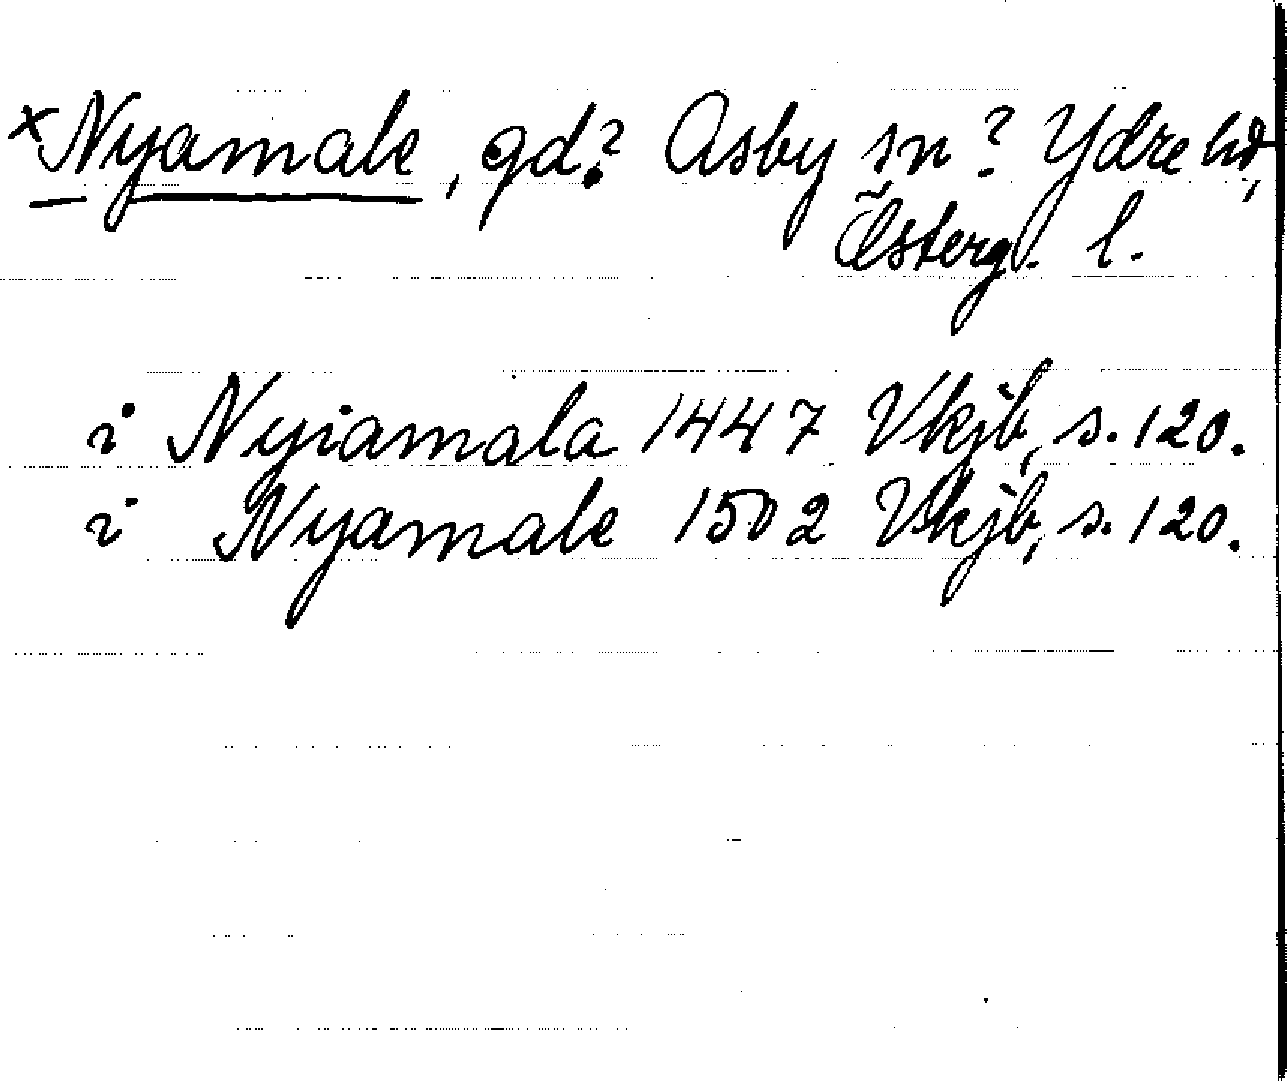 ×Nyamale, gd? Asby sn? Ydre hd,
Österg. l.
i Nyiamala 1447 Vkjb, s. 120.
i Nyamale 1502 Vkjb, s. 120.